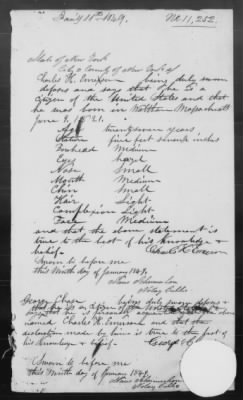 Jan'y 11th 1849. No 11,252.
State of New York
City & County of New York ss
Charles K. Emerson being duly sworn
deposes and says that he is a
citizen of the United States and that
he was born in Waltham Massachusetts
June 9, 1821.
Age twenty seven years
Stature five feet seven inches
Forehead Medium
Eyes hazel
Nose Small
Mouth Medium
Chin Small
Hair Light
Complexion Light
Face Medium
and that the above statement is
true to the best of his knowledge &
belief. Emerson
Sworn to before me
this Ninth day of January 1849.
Notary Public
George being duly sworn deposes &
says that he is a citizen of the
named Charles K. Emerson and that the
declaration made by him is true to the best of
his knowledge & belief. George
Sworn to before me
this Ninth day of January 1849.
Notary Public